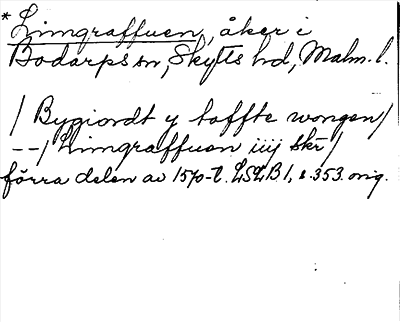 * Limgraffuen, åker i
Bodarps sn, Skytts hd, Malm. l.
/ Bygiordt y toffte wongen/
--/ Limgraffuen iiij skr/
förra delen av 1570-t. LSLB 1, s. 353. orig.